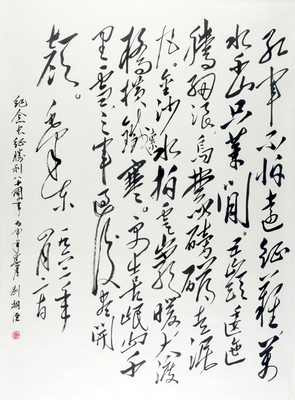 红军不怕远征难万
水千山只等闲五岭逶迤
腾细浪乌蒙磅礴走泥
丸。金沙水拍云崖暖大渡
桥横铁索寒。更喜岷山千
里雪三军过后尽开
颜。
毛泽东
一九六二年
纪念长征胜利八十周年丙申年